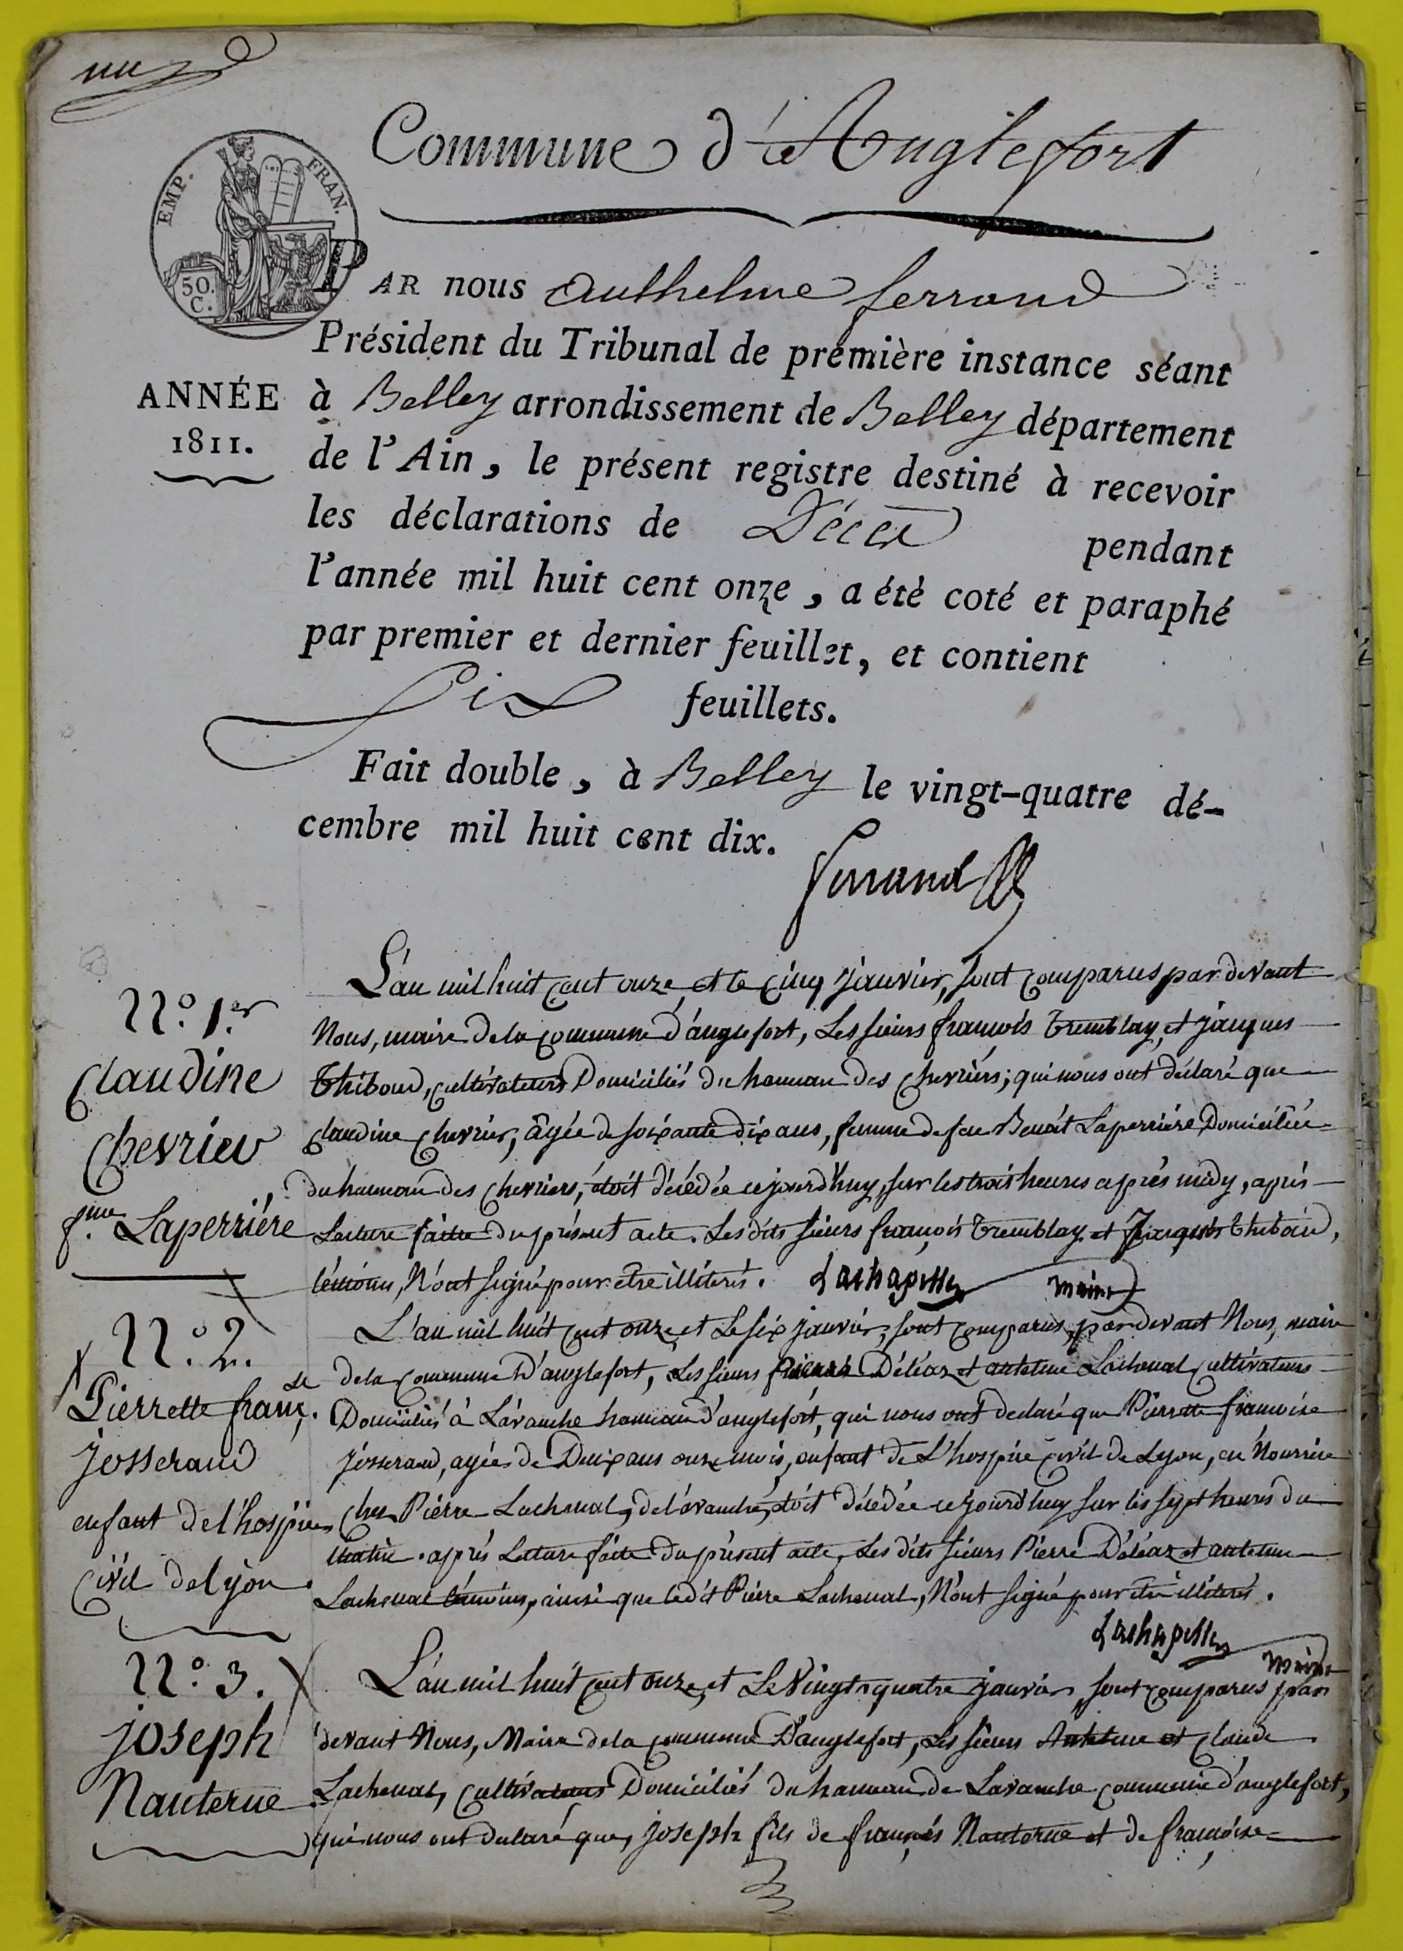 une
Commune d'Anglefort
EMP. FRAN.
50.
C.
PAR nous Anthelme ferrand
Président du Tribunal de première instance séant
ANNÉE
1811.
à Belley arrondissement de Belley département
de l'Ain, le présent registre destiné à recevoir
les déclarations de Décès pendant
l'année mil huit cent onze, a été coté et paraphé
par premier et dernier feuillet, et contient
Six feuillets.
Fait double, à Belley le vingt-quatre dé-
cembre mil huit cent dix.
ferrand
N.o 1.er
Claudine
Chevrier
f.me Laperrière
L'an mil huit cent onze, et le cinq janvier, sont comparus par devant
Nous, maire de la commune d'anglefort, Les sieurs françois tremblay, et jacques
thiboud, cultivateurs Domiciliés du hameau des chevriers; qui nous ont déclaré que
claudine chevrier, âgée de soixante dix ans, femme de feu Benoit Laperrière Domiciliée
du hameau des chevriers, étoit décédée cejourd'huy, sur les trois heures après midy, après
Lecture faitte du présent acte. Les dits sieurs françois tremblay et Jacques thiboud,
témoins, N'ont signé pour être illiterés. Lachapelle maire
N.o 2.
Pierrette franç.se
josserand
enfant de l'hospice
civil de lyon
L'an mil huit cent onze, et Le six janvier, sont comparus, par devant Nous, maire
de la commune D'anglefort, Les sieurs pierre Déléaz et antelme Lacheval cultivateurs
Domiciliés à Lavanche hameau d'anglefort, qui nous ont declaré que Pierrette françoise
josserand, agée de Deux ans onze mois, enfant de L'hospice civil de Lyon, en Nourrice
chez Pierre Lacheval, de lavanche, étoit décédée cejourd'huy sur les sept heures du
matin. après Lecture faite du présent acte, Les dits sieurs Pierre Déléaz et antelme
Lacheval témoins, ainsi que ledit Pierre Lacheval, N'ont signé pour être illiterés.
Lachapelle maire
N.o 3.
joseph
Nanterne
L'an mil huit cent onze, et Le Vingt quatre janvier, sont comparus par
devant Nous, Maire de la commune D'anglefort, Les sieurs Antelme et claude
Lacheval, cultivateurs Domiciliés du hameau de Lavanche commune d'anglefort,
qui nous ont declaré que, joseph fils de françois Nanterne et de françoise